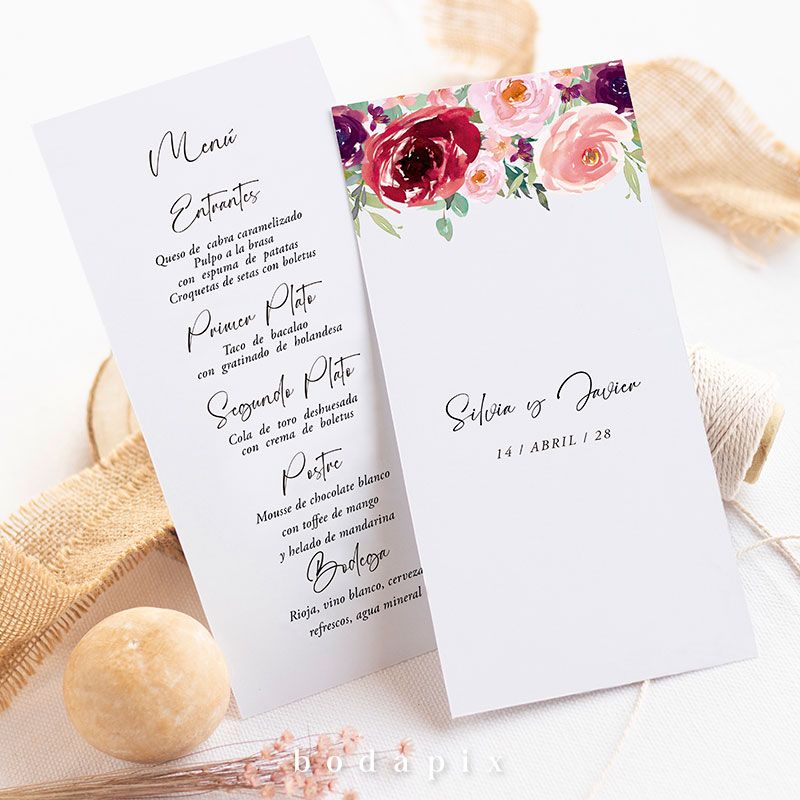 Menú
Entrantes
Queso de cabra caramelizado
Pulpo a la brasa
con espuma de patatas
Croquetas de setas con boletus
Primer Plato
Taco de bacalao
con gratinado de holandesa
Segundo Plato
Cola de toro deshuesada
con crema de boletus
Postre
Mousse de chocolate blanco
con toffee de mango
y helado de mandarina
Bodega
Rioja, vino blanco, cerveza
refrescos, agua mineral
Silvia y Javier
14 / ABRIL / 28
bodapix